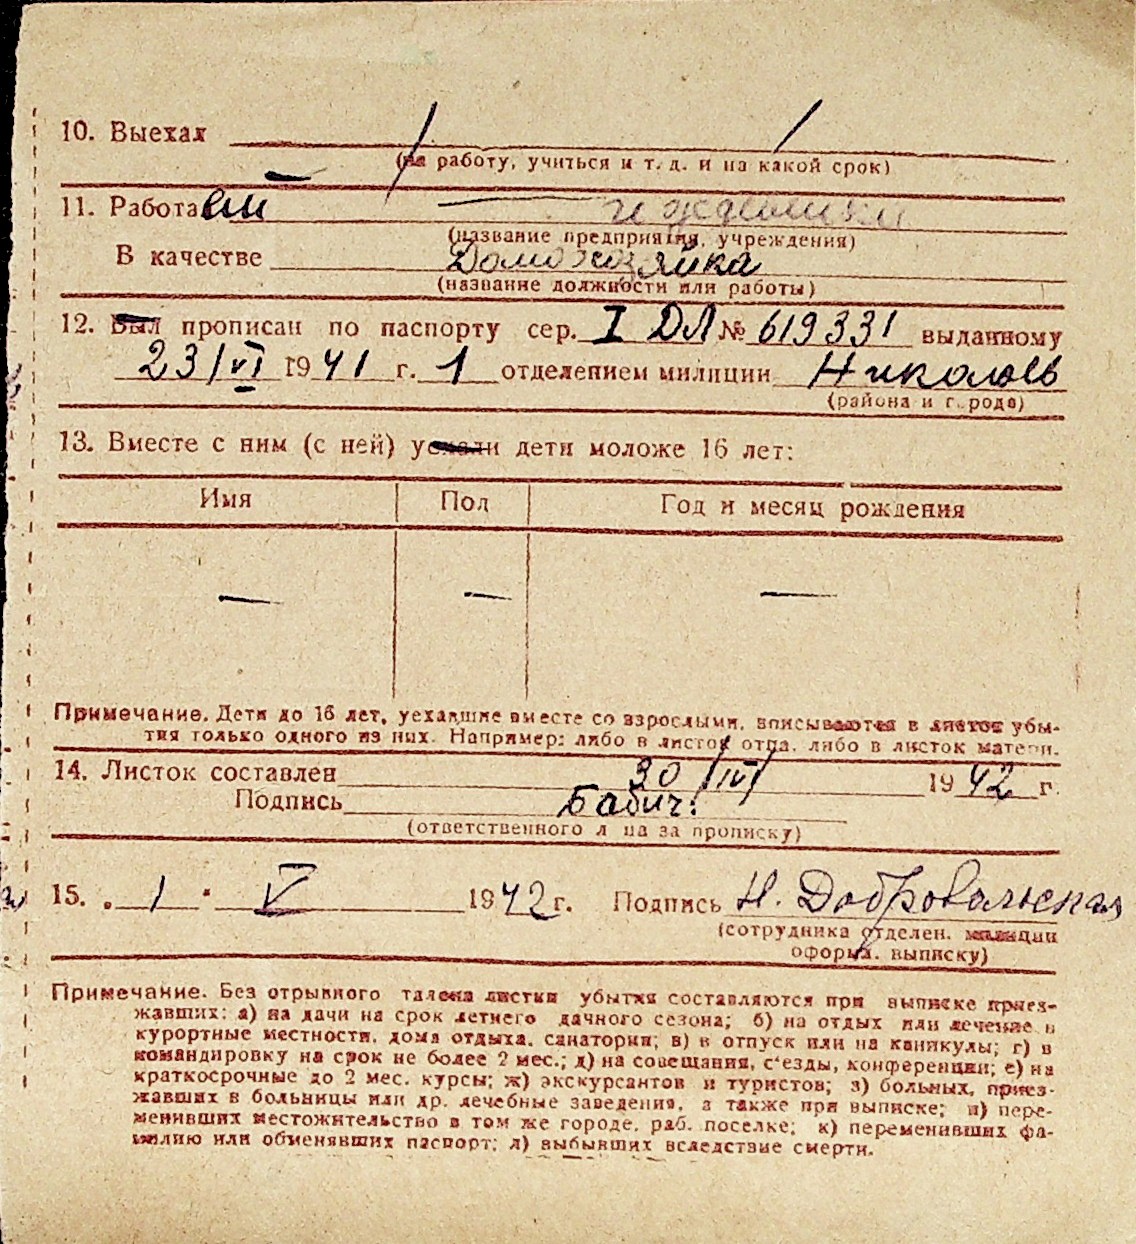 10. Выехал
(на работу, учиться и т. д. и на какой срок)
11. Работает
(название предприятия, учреждения)
В качестве Домохозяйка
(название должности или работы)
12. Был прописан по паспорту сер. I ДЛ № 619331 выданному
23/VI 1941 г. 1 отделением милиции Николаев
(района и города)
13. Вместе с ним (с ней) уехали дети моложе 16 лет:
Имя Пол Год и месяц рождения
— — —
Примечание. Дети до 16 лет, уехавшие вместе со взрослыми, вписываются в листок убы-
тия только одного из них. Например: либо в листок отца, либо в листок матери.
14. Листок составлен 30/IV/ 1942 г.
Подпись Бабич.
(ответственного лица за прописку)
15. „ 1 " V 1942 г. Подпись Н. Добровольская
(сотрудника отделен. милиции
оформ. выписку)
Примечание. Без отрывного талона листки убытия составляются при выписке приез-
жавших: а) на дачи на срок летнего дачного сезона; б) на отдых или лечение в
курортные местности, дома отдыха, санатории; в) в отпуск или на каникулы; г) в
командировку на срок не более 2 мес.; д) на совещания, с'езды, конференции; е) на
краткосрочные до 2 мес. курсы; ж) экскурсантов и туристов; з) больных, приез-
жавших в больницы или др. лечебные заведения, а также при выписке; и) пере-
менивших местожительство в том же городе, раб. поселке; к) переменивших фа-
милию или обменявших паспорт; л) выбывших вследствие смерти.